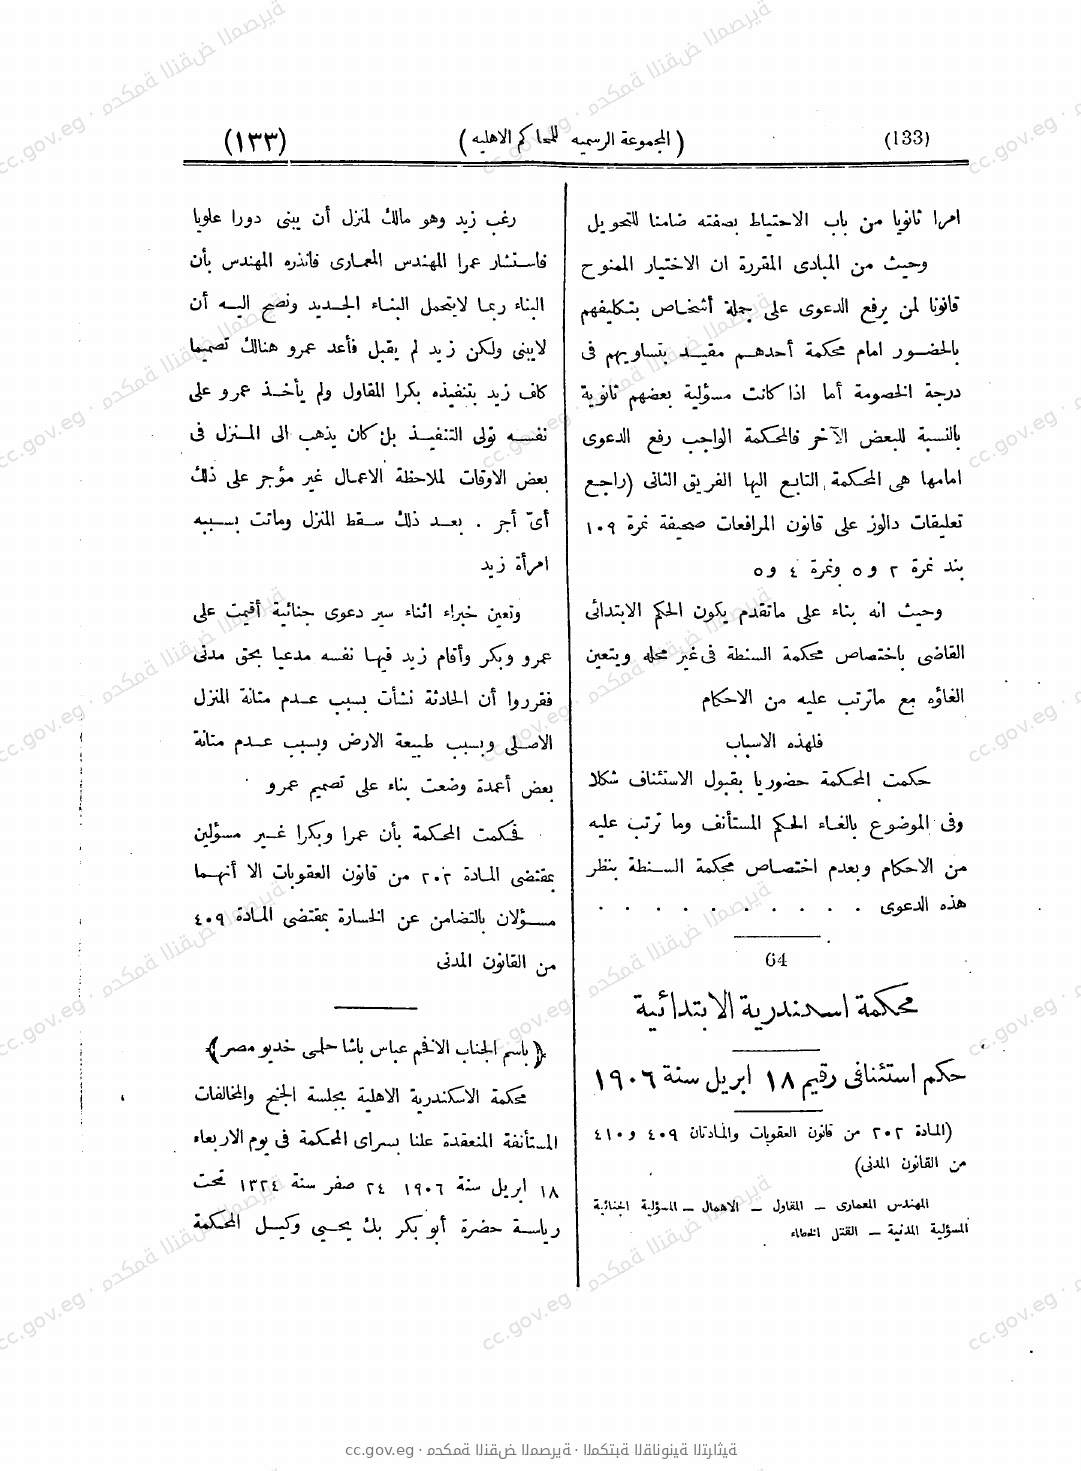 (133)
(المجموعة الرسميه للمحاكم الاهليه)
(١٣٣)
امرا ثانويا من باب الاحتياط بصفته ضامنا للتحويل
وحيث من المبادى المقررة ان الاختيار الممنوح
قانونا لمن يرفع الدعوى على جملة أشخاص بتكليفهم
بالحضور امام محكمة أحدهم مقيد بتساويهم فى
درجة الخصومة أما اذا كانت مسؤلية بعضهم ثانوية
بالنسبة للبعض الآخر فالمحكمة الواجب رفع الدعوى
امامها هى المحكمة التابع اليها الفريق الثانى (راجع
تعليقات دالوز على قانون المرافعات صحيفة نمرة ١٠٩
بند نمرة ٢ و٥ ونمرة ٤ و٥
وحيث انه بناء على ماتقدم يكون الحكم الابتدائى
القاضى باختصاص محكمة السنطة فى غير محله ويتعين
الغاؤه مع ماترتب عليه من الاحكام
فلهذه الاسباب
حكمت المحكمة حضوريا بقبول الاستئناف شكلا
وفى الموضوع بالغاء الحكم المستأنف وما ترتب عليه
من الاحكام وبعدم اختصاص محكمة السنطة بنظر
هذه الدعوى . . . . . . . . . .
64
محكمة اسكندرية الابتدائية
حكم استئنافى رقيم ١٨ ابريل سنة ١٩٠٦
(المادة ٢٠٢ من قانون العقوبات والمادتان ٤٠٩ و٤١٠
من القانون المدنى)
المهندس المعمارى ــ المقاول ــ الاهمال ــ المسؤلية الجنائية
المسؤلية المدنية ــ القتل الخطاء
رغب زيد وهو مالك لمنزل أن يبنى دورا علويا
فاستشار عمرا المهندس المعمارى فانذره المهندس بأن
البناء ربما لايتحمل البناء الجديد ونصح اليه أن
لايبنى ولكن زيد لم يقبل فأعد عمرو هنالك تصميما
كاف زيد بتنفيذه بكرا المقاول ولم يأخذ عمرو على
نفسه تولى التنفيذ بل كان يذهب الى المنزل فى
بعض الاوقات لملاحظة الاعمال غير مؤجر على ذلك
أىّ أجر . بعد ذلك سقط المنزل وماتت بسببه
امرأة زيد
وتعين خبراء اثناء سير دعوى جنائية أقيمت على
عمرو وبكر وأقام زيد فيها نفسه مدعيا بحق مدنى
فقرروا أن الحادثة نشأت بسبب عدم متانة المنزل
الاصلى وبسبب طبيعة الارض وبسبب عدم متانة
بعض أعمدة وضعت بناء على تصميم عمرو
فحكمت المحكمة بأن عمرا وبكرا غير مسؤلين
بمقتضى المادة ٢٠٢ من قانون العقوبات الا أنهما
مسؤلان بالتضامن عن الخسارة بمقتضى المادة ٤٠٩
من القانون المدنى
﴿باسم الجناب الافخم عباس باشا حلمى خديو مصر﴾
محكمة الاسكندرية الاهلية بجلسة الجنح والمخالفات
المستأنفة المنعقدة علنا بسراى المحكمة فى يوم الاربعاء
١٨ ابريل سنة ١٩٠٦ ٢٤ صفر سنة ١٣٢٤ تحت
رياسة حضرة أبو بكر بك يحيى وكيل المحكمة
cc.gov.eg · محكمة النقض المصرية · المكتبة القانونية التراثية